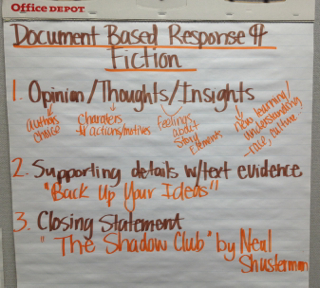 Office DEPOT
Document Based Response 4
Fiction
1. Opinion/Thoughts/Insights
authors choice
Characters actions/motives
feelings about Story Elements
new learning/ understanding - culture
2. Supporting details w/text evidence
"Back Up Your Ideas"
3. Closing Statement
"The Shadow Club" by Neal
Shusterman